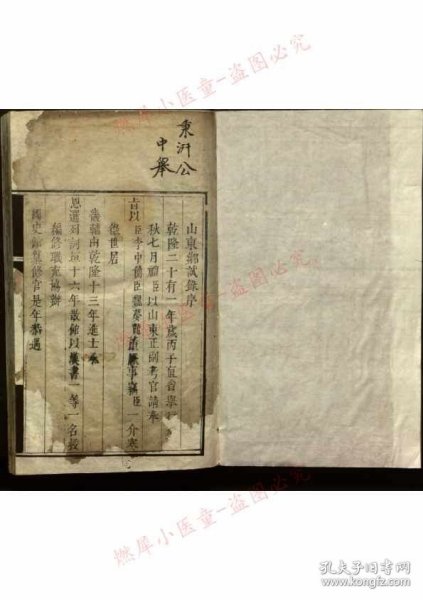 燃犀小医童-盗图必究
秉沂公
中舉
山東鄉試錄序
乾隆二十有一年歲丙子直省舉行
秋七月禮臣以山東正副考官請奉
旨以臣李中
臣
臣一介寒
世居
畿輔南乾隆十三年進士
恩選列詞垣十六年散館以
書一等一名授
編修職充協辦
國史館纂修官是年恭遇
燃犀小医童-盗图必究
燃犀小医童-盗图必究
孔夫子旧书网
kongfz.com